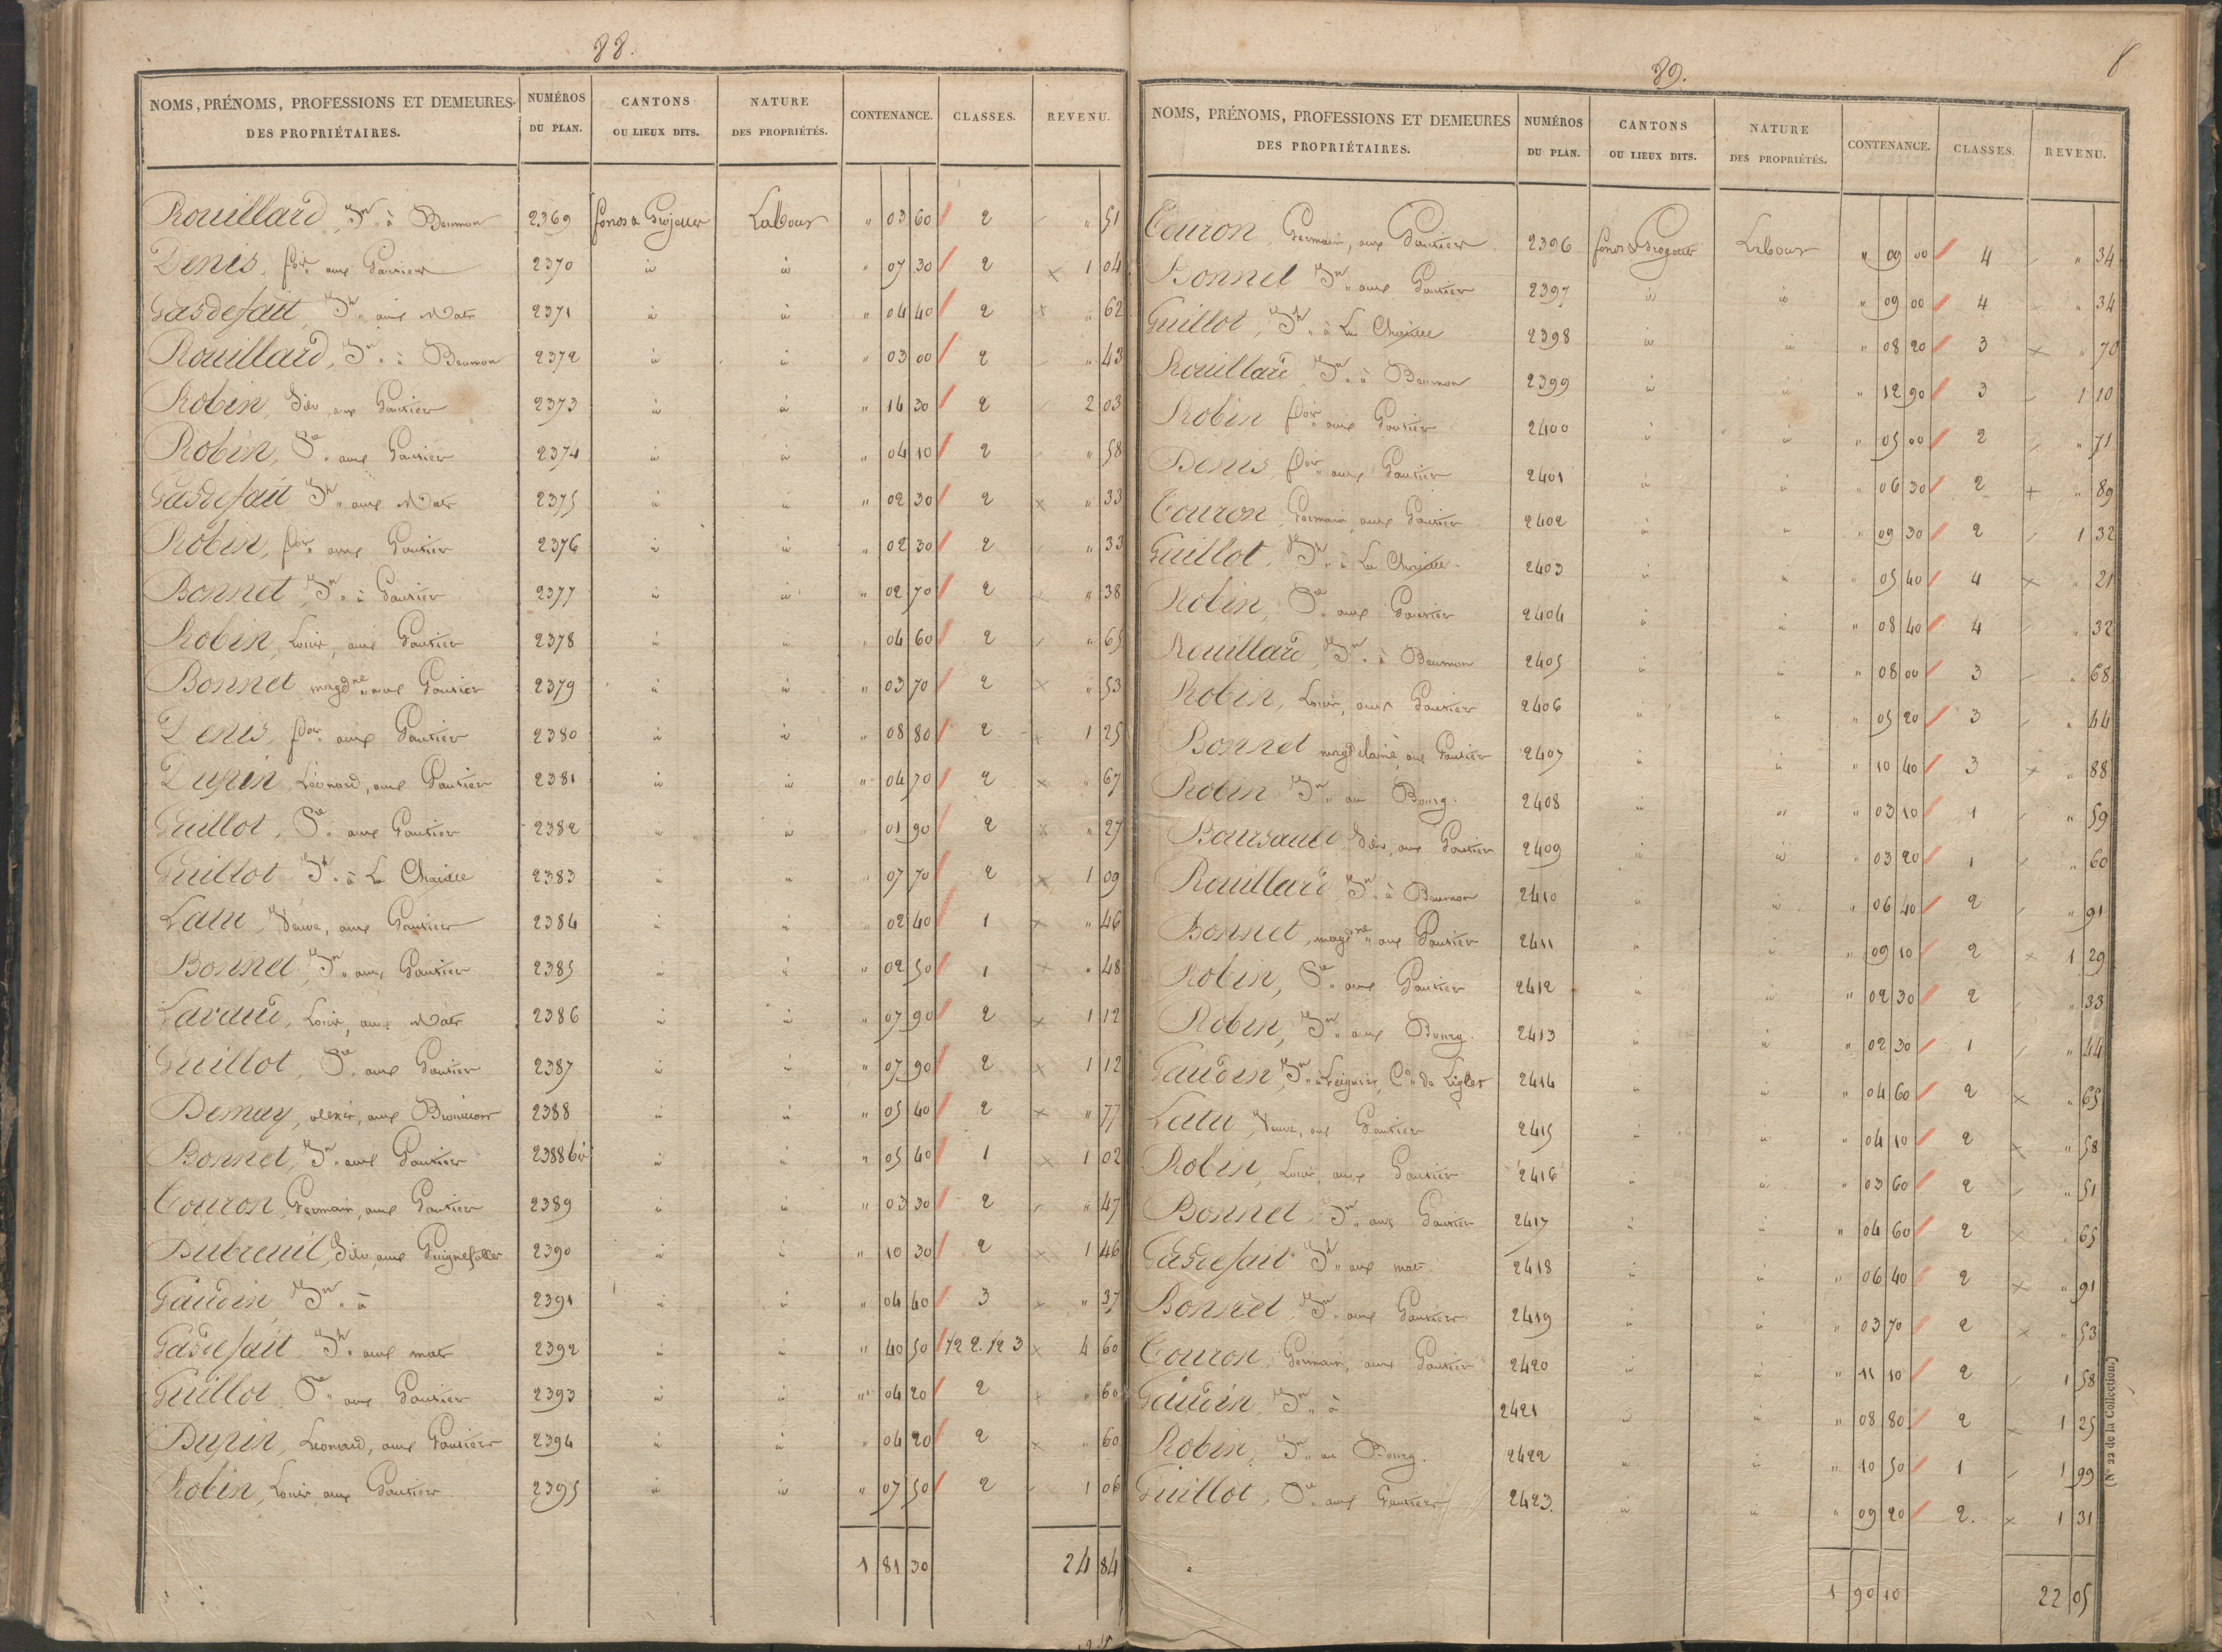 88.
NOMS, PRÉNOMS, PROFESSIONS ET DEMEURES DES PROPRIÉTAIRES. NUMÉROS DU PLAN. CANTONS OU LIEUX DITS. NATURE DES PROPRIÉTÉS. CONTENANCE. CLASSES. REVENU.
Rouillard, Jn. à Beumon 2369 Labour " 03 60 2 " 51
Denis, flor. aux Gautier 2370 id id " 07 30 2 1 04
Gasdefait, Jh. aux Mats 2371 id id " 04 40 2 " 62
Rouillard, Jn. à Beumon 2372 id id " 03 00 2 " 43
Robin, Silv, aux Gautier 2373 id id " 14 30 2 2 03
Robin, Pe. aux Gautier 2374 id id " 04 10 2 " 58
Gasdefait Jh. aux Mats 2375 id id " 02 30 2 " 33
Robin, flor. aux Gautier 2376 id id " 02 30 2 " 33
Bonnet Jn. à Gautier 2377 id id " 02 70 2 " 38
Robin, Louis, aux Gautier 2378 id id " 04 60 2 " 65
Bonnet magdne. aux Gautier 2379 id id " 03 70 2 " 53
Denis, flor. aux Gautier 2380 id id " 08 80 2 1 25
Dupin, Léonard, aux Gautier 2381 id id " 04 70 2 " 67
Guillot, Pe. aux Gautier 2382 id id " 01 90 2 " 27
Guillot Jh. à La Chaise 2383 id id " 07 70 2 1 09
Latu, Veuve, aux Gautier 2384 id id " 02 40 1 " 46
Bonnet, Jn. aux Gautier 2385 id id " 02 50 1 " 48
Lavaud, Louis, aux Mats 2386 id id " 07 90 2 1 12
Guillot, Pe. aux Gautier 2387 id id " 07 90 2 1 12
Demay, alexis, aux 2388 id id " 05 40 2 " 77
Bonnet, Jn. aux Gautier 2388 bis id id " 05 40 1 1 02
Couron, Germain, aux Gautier 2389 id id " 03 30 2 " 47
Dubreuil, Silv, aux 2390 id id " 10 30 2 1 46
Gaudin, Jn. à 2391 id id " 04 40 3 " 37
Gasdefait Jh. aux mats 2392 id id " 40 50 1/2 2. 1/2 3 4 60
Guillot, Pe. aux Gautier 2393 id id " 04 20 2 " 60
Dupin, Leonard, aux Gautier 2394 id id " 04 20 2 " 60
Robin, Louis, aux Gautier 2395 id id " 07 50 2 1 06
1 81 30 24 84
89.
NOMS, PRÉNOMS, PROFESSIONS ET DEMEURES DES PROPRIÉTAIRES. NUMÉROS DU PLAN. CANTONS OU LIEUX DITS. NATURE DES PROPRIÉTÉS. CONTENANCE. CLASSES. REVENU.
Couron, Germain, aux Gautier 2396 Labour " 09 00 4 " 34
Bonnet Jn. aux Gautier 2397 id id " 09 00 4 " 34
Guillot, Jh. à La Chaise 2398 id id " 08 20 3 " 70
Rouillard, Jn. à Beumon 2399 id id " 12 90 3 1 10
Robin flor. aux Gautier 2400 id id " 05 00 2 " 71
Denis, flor. aux Gautier 2401 id id " 06 30 2 " 89
Couron, Germain, aux Gautier 2402 id id " 09 30 2 1 32
Guillot, Jh. à La Chaise 2403 id id " 05 40 4 " 21
Robin, Pe. aux Gautier 2404 id id " 08 40 4 " 32
Rouillard, Jn. à Beumon 2405 id id " 08 00 3 " 68
Robin, Louis, aux Gautier 2406 id id " 05 20 3 " 44
Bonnet magdelaine, aux Gautier 2407 id id " 10 40 3 " 88
Robin Jn. au Bourg. 2408 id id " 03 10 1 " 59
Boursault, Silv, aux Gautier 2409 id id " 03 20 1 " 60
Rouillard, Jn. à Beumon 2410 id id " 06 40 2 " 91
Bonnet, magdne. aux Gautier 2411 id id " 09 10 2 1 29
Robin, Pe. aux Gautier 2412 id id " 02 30 2 " 33
Robin, Jn. aux Bourg. 2413 id id " 02 30 1 " 44
Gaudin, Jn. Cne. de Liglet 2414 id id " 04 60 2 " 65
Latu, Veuve, aux Gautier 2415 id id " 04 10 2 " 58
Robin, Louis, aux Gautier 2416 id id " 03 60 2 " 51
Bonnet, Jn. aux Gautier 2417 id id " 04 60 2 " 65
Gasdefait Jh. aux mats. 2418 id id " 06 40 2 " 91
Bonnet, Jn. aux Gautier 2419 id id " 03 70 2 " 53
Couron, Germain, aux Gautier 2420 id id " 11 10 2 1 58
Gaudin, Jn. à 2421 id id " 08 80 2 1 25
Robin, Jn. au Bourg. 2422 id id " 10 50 1 1 99
Guillot, Pe. aux Gautier 2423. id id " 09 20 2. 1 31
1 90 10 22 05
(N° 22 de la Collection.)